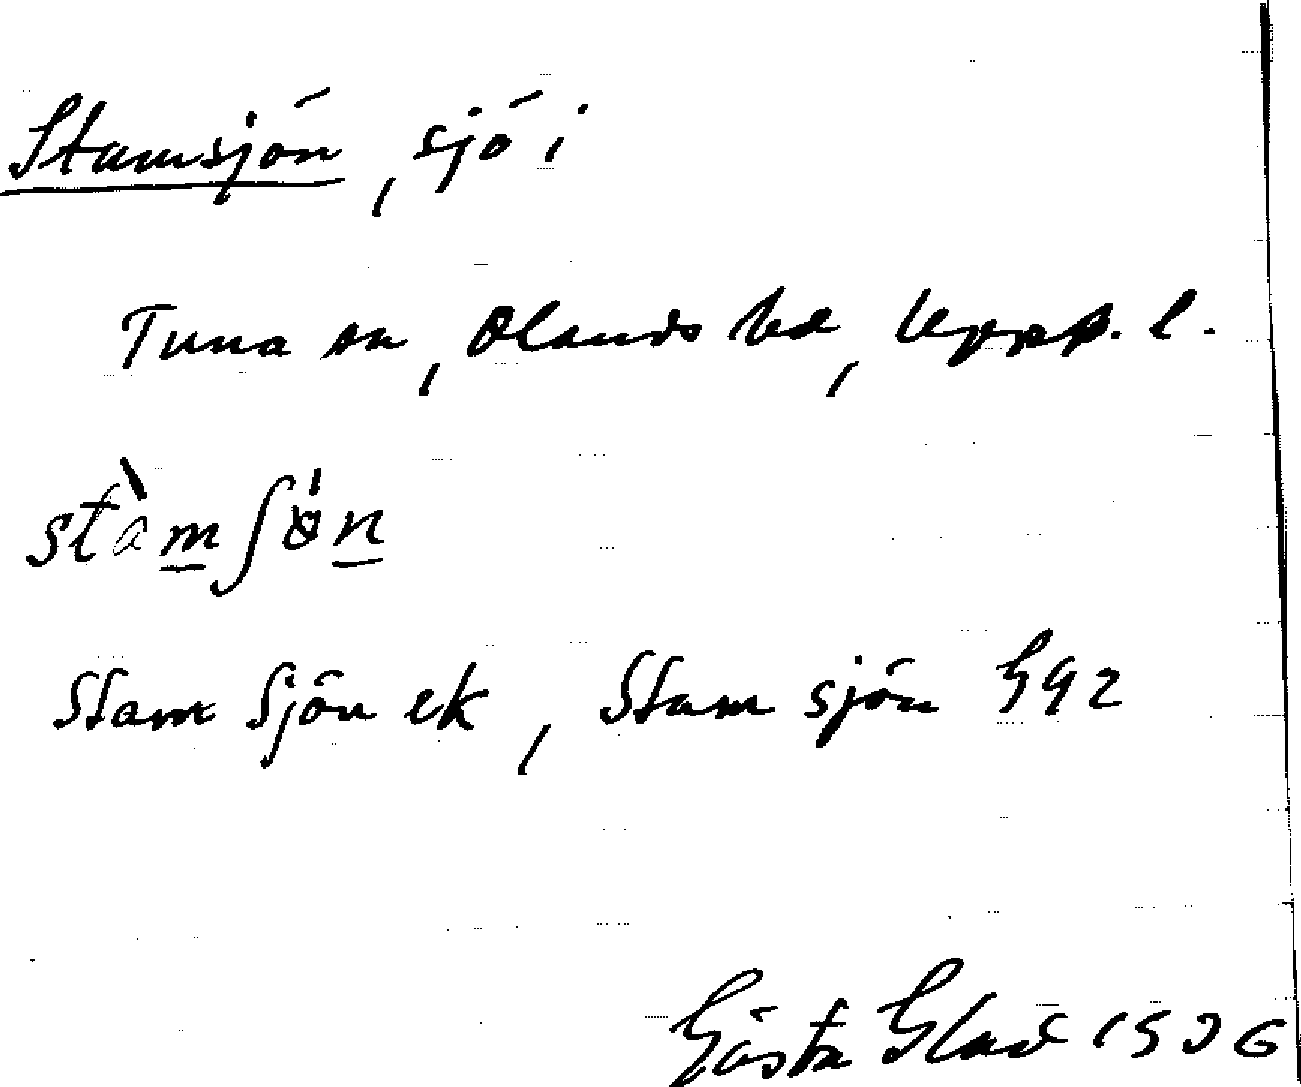 Stamsjön, sjö i
Tuna sn, Olands hd, Upps. l.
stàmʃön
Stam Sjön ek, Stam sjön G92
Gösta Glad 1936